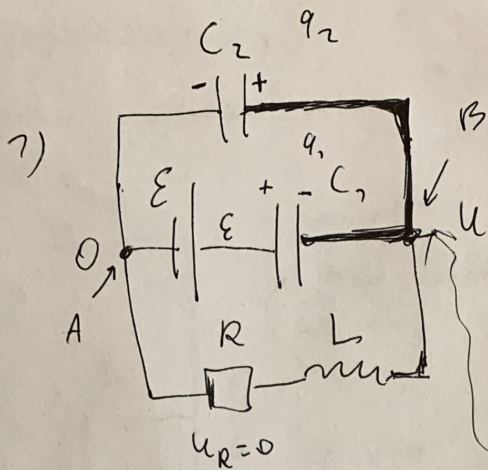 C₂ q₂
- +
B
?)
q₁
ε + - C₁
ε
O U
A
R L
U_R=0